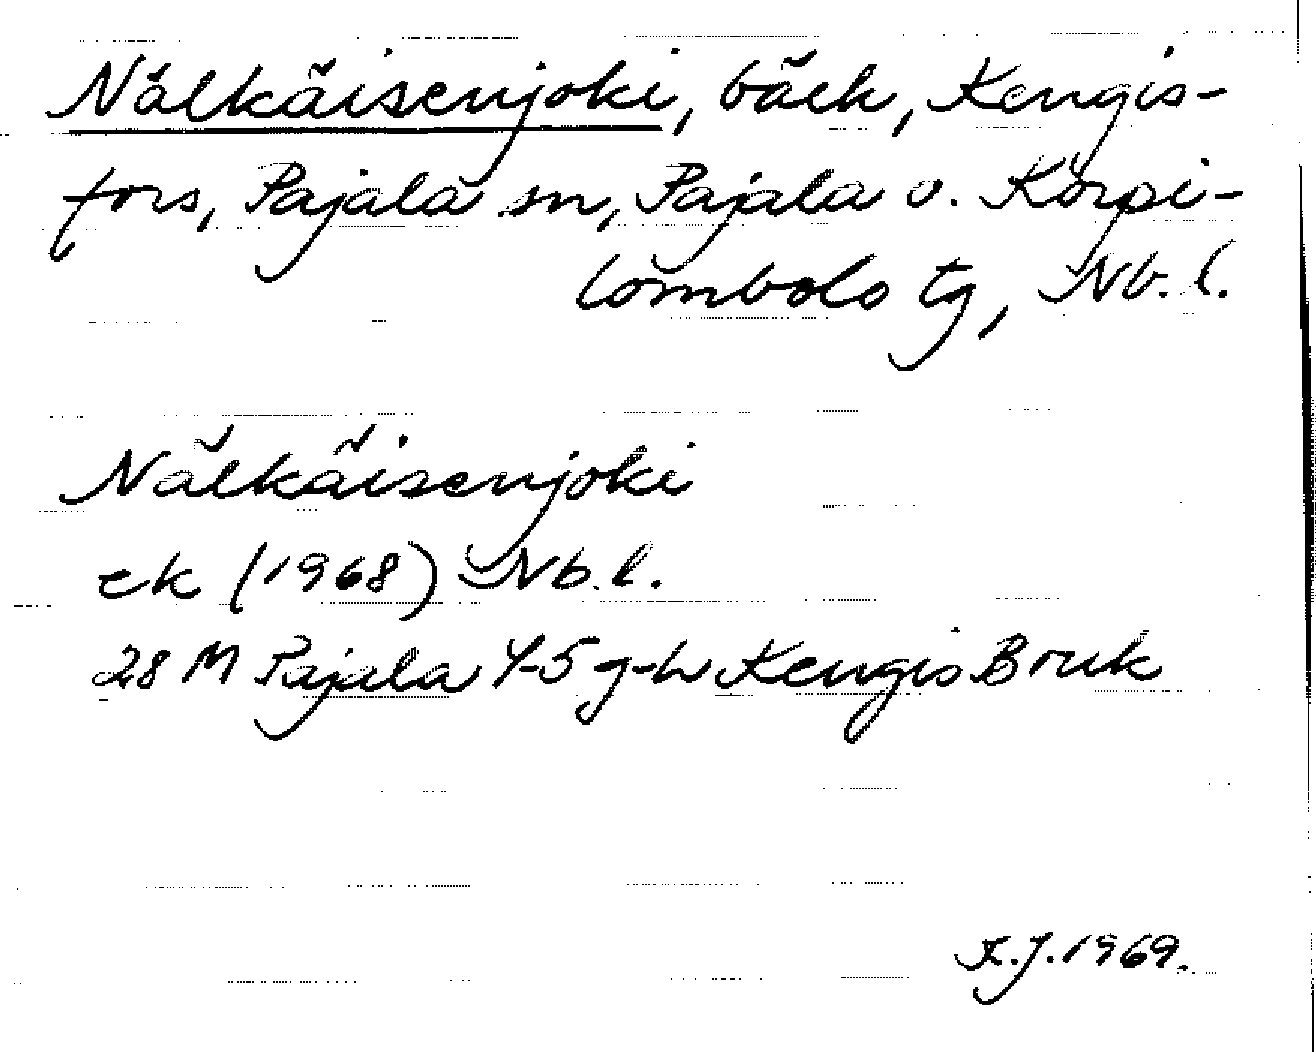 Nälkäisenjoki, bäck, Kengis-
fors, Pajala sn, Pajala o. Korpi-
lombolo tg, Nb. l.
Nälkäisenjoki
ek (1968) Nb. l.
28 M Pajala 4-5 g-h Kengis Bruk
K.J. 1969.